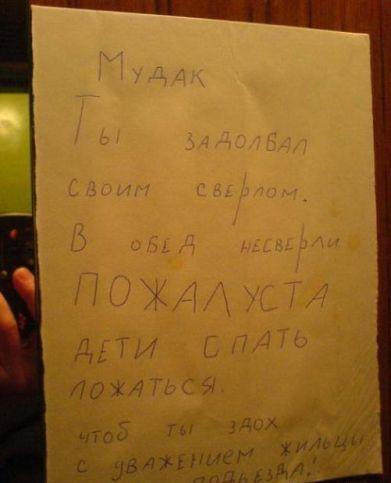 Мудак
Ты задолбал
своим сверлом.
В обед несверли
ПОЖАЛУСТА
ДЕТИ СПАТЬ
ЛОЖАТЬСЯ.
чтоб ты здох
с уважением жильцы
подьезда!